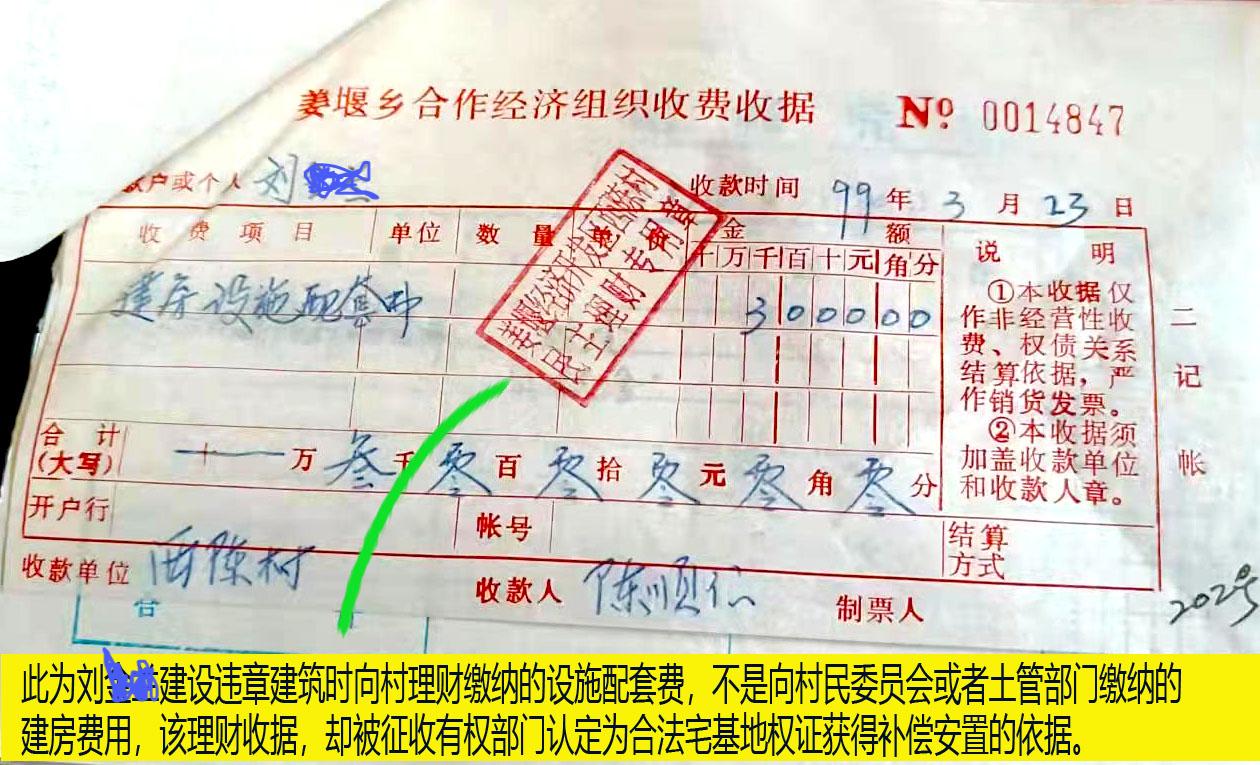 姜堰乡合作经济组织收费收据 Nº 0014847
款户或个人 刘 收款时间 99 年 3 月 23 日
收费项目 单位 数量 单价 金额 说明
十万千百十元角分
建房设施配套费 300000
①本收据仅
作非经营性收
费、权债关系
结算依据，严
作销货发票。
②本收据须
加盖收款单位
和收款人章。
二记帐
姜堰经济开发区陈村
民主理财专用章
合计
(大写) 万 叁 千 零 百 零 拾 零 元 零 角 零 分
开户行 帐号 结算
方式
收款单位 西陈村 收款人 陈顺仁 制票人
202号
合
此为刘建设违章建筑时向村理财缴纳的设施配套费，不是向村民委员会或者土管部门缴纳的
建房费用，该理财收据，却被征收有权部门认定为合法宅基地权证获得补偿安置的依据。